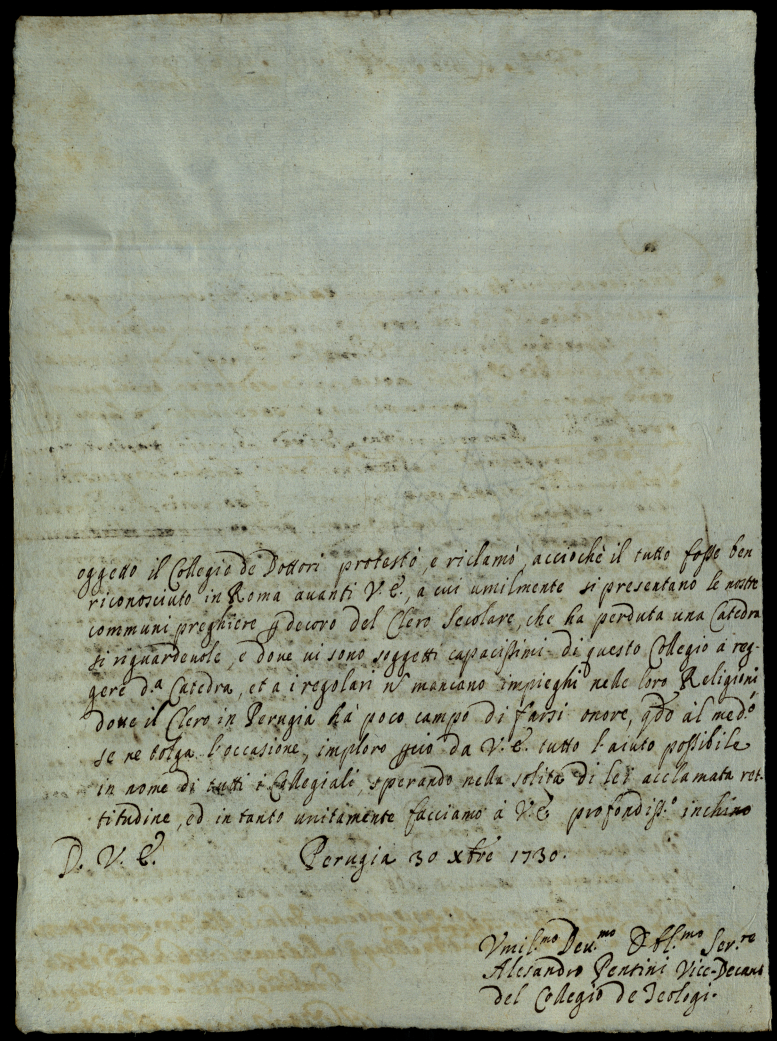 oggetto il Collegio de Dottori protestò, e riclamò, acciochè il tutto fosse ben
riconosciuto in Roma auanti V. E., a cui umilmente si presentano le nostre
communi preghiere p decoro del Clero Secolare, che ha perduta una Catedra
si riguardeuole, e doue ui sono soggetti capacissimi di questo Collegio à reg-
gere d.a Catedra, et a i regolari nō mancano impieghi nelle loro Religioni
doue il Clero in Perugia hà poco campo di farsi onore, qdo al med.o
se ne tolga l'occasione, imploro pciò da V. E. tutto l'aiuto possibile
in nome di tutti i Collegiali, sperando nella solita di lei acclamata ret-
titudine, ed in tanto unitamente facciamo à V. E. profondiss.o inchino
D. V. E. Perugia 30 xbre 1730.
Vmil.mo Deu.mo Obl.mo Ser.re
Alesandro Pentini Vice-Decano
del Collegio de Teologi.